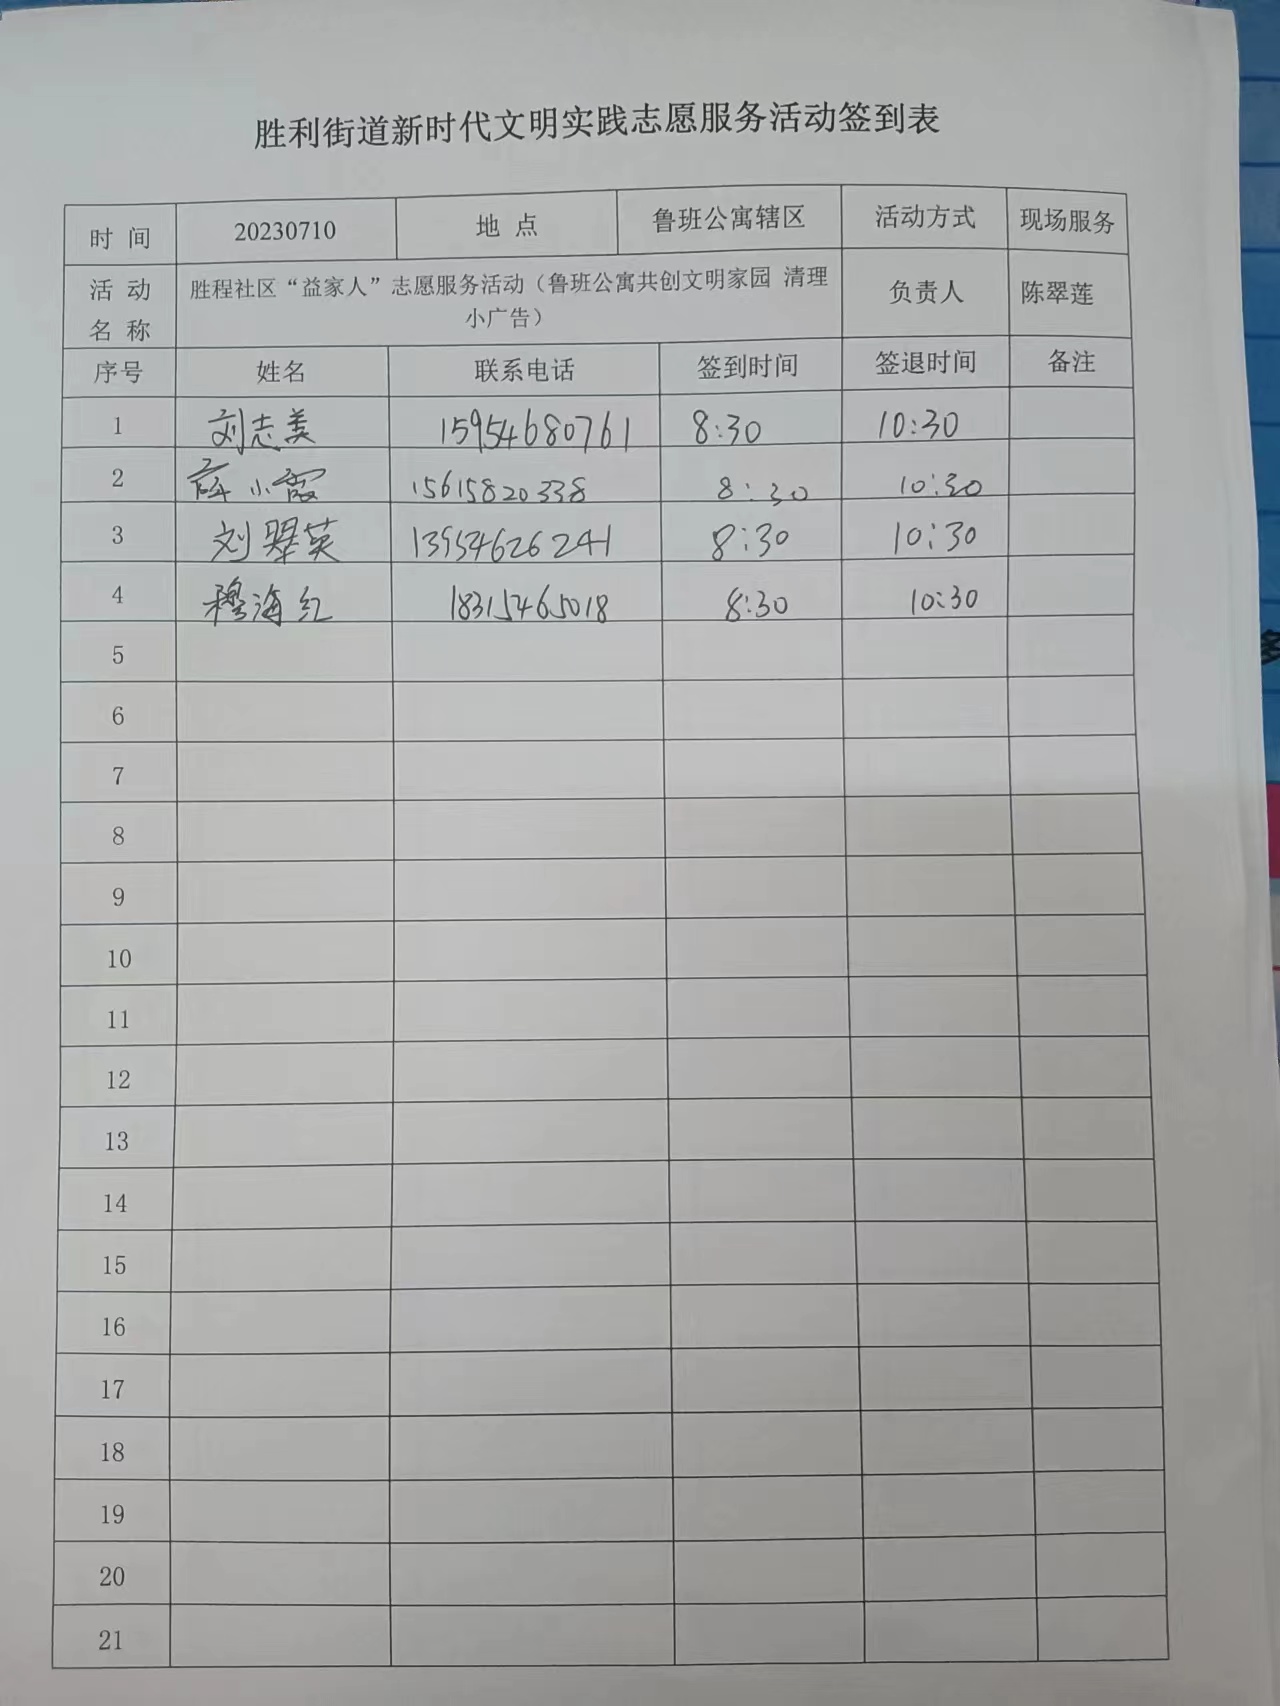 胜利街道新时代文明实践志愿服务活动签到表
时 间 20230710 地 点 鲁班公寓辖区 活动方式 现场服务
活 动 名 称 胜程社区“益家人”志愿服务活动（鲁班公寓共创文明家园 清理 小广告） 负责人 陈翠莲
序号 姓名 联系电话 签到时间 签退时间 备注
1 刘志美 15954680761 8:30 10:30
2 薛小霞 15615820338 8:30 10:30
3 刘翠英 13954626241 8:30 10:30
4 穆海红 18315465018 8:30 10:30
5
6
7
8
9
10
11
12
13
14
15
16
17
18
19
20
21